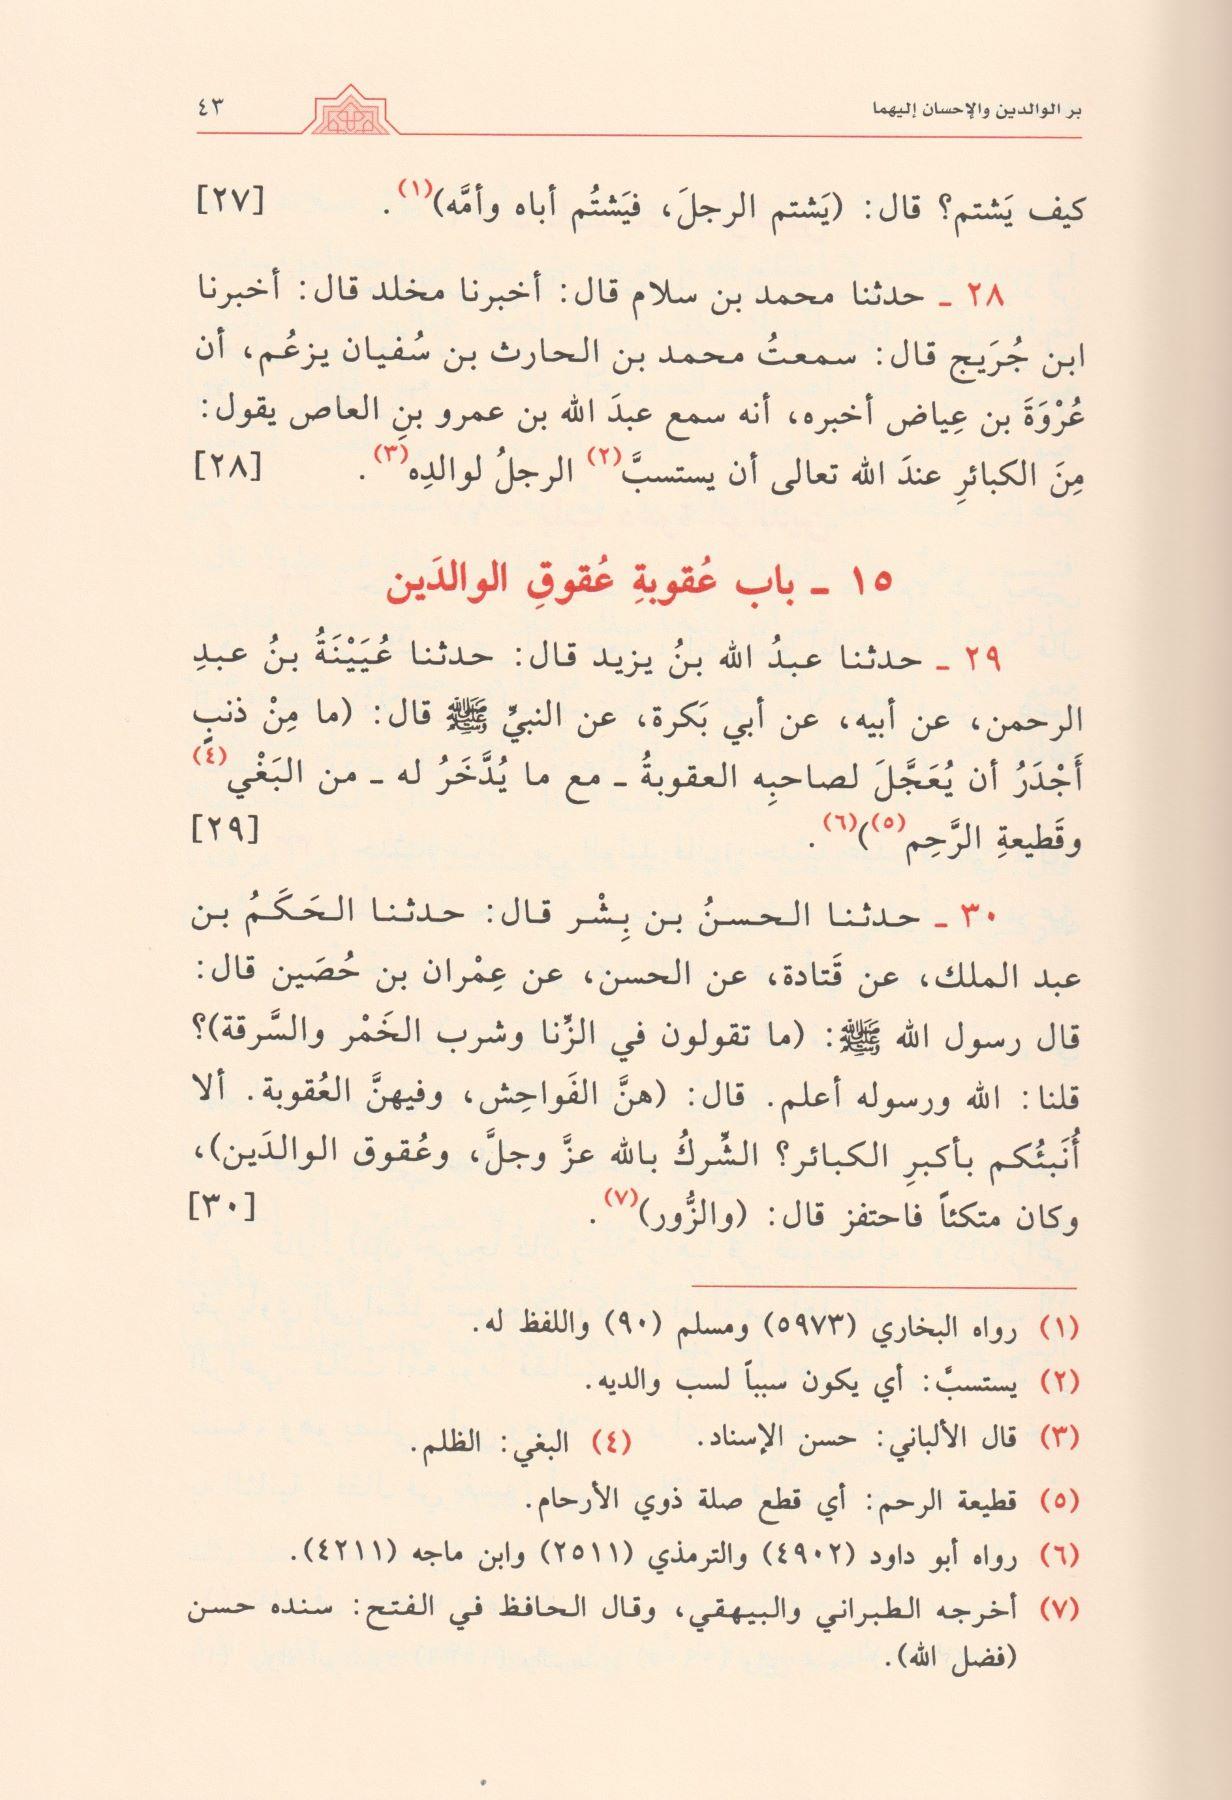 بر الوالدين والإحسان إليهما ٤٣
كيف يَشتم؟ قال: (يَشتم الرجلَ، فيَشتُم أباه وأمَّه)(١). [٢٧]
٢٨ ـ حدثنا محمد بن سلام قال: أخبرنا مخلد قال: أخبرنا
ابن جُرَيج قال: سمعتُ محمد بن الحارث بن سُفيان يزعُم، أن
عُرْوَةَ بن عِياض أخبره، أنه سمع عبدَ الله بن عمرو بنِ العاص يقول:
مِنَ الكبائرِ عندَ الله تعالى أن يستسبَّ(٢) الرجلُ لوالدِه(٣). [٢٨]
١٥ ـ باب عُقوبةِ عُقوقِ الوالدَين
٢٩ ـ حدثنا عبدُ الله بنُ يزيد قال: حدثنا عُيَيْنَةُ بنُ عبدِ
الرحمن، عن أبيه، عن أبي بَكرة، عن النبيِّ ﷺ قال: (ما مِنْ ذنبٍ
أَجْدَرُ أن يُعَجَّلَ لصاحبِه العقوبةُ ـ مع ما يُدَّخَرُ له ـ من البَغْي(٤)
وقَطيعةِ الرَّحِم(٥))(٦). [٢٩]
٣٠ ـ حدثنا الحسنُ بن بِشْر قال: حدثنا الحَكَمُ بن
عبد الملك، عن قَتادة، عن الحسن، عن عِمْران بن حُصَين قال:
قال رسول الله ﷺ: (ما تقولون في الزِّنا وشرب الخَمْر والسَّرقة)؟
قلنا: الله ورسوله أعلم. قال: (هنَّ الفَواحِش، وفيهنَّ العُقوبة. ألا
أُنَبئُكم بأكبرِ الكبائر؟ الشِّركُ بالله عزَّ وجلَّ، وعُقوق الوالدَين)،
وكان متكئاً فاحتفز قال: (والزُّور)(٧). [٣٠]
(١) رواه البخاري (٥٩٧٣) ومسلم (٩٠) واللفظ له.
(٢) يستسبَّ: أي يكون سبباً لسب والديه.
(٣) قال الألباني: حسن الإسناد. (٤) البغي: الظلم.
(٥) قطيعة الرحم: أي قطع صلة ذوي الأرحام.
(٦) رواه أبو داود (٤٩٠٢) والترمذي (٢٥١١) وابن ماجه (٤٢١١).
(٧) أخرجه الطبراني والبيهقي، وقال الحافظ في الفتح: سنده حسن
(فضل الله).